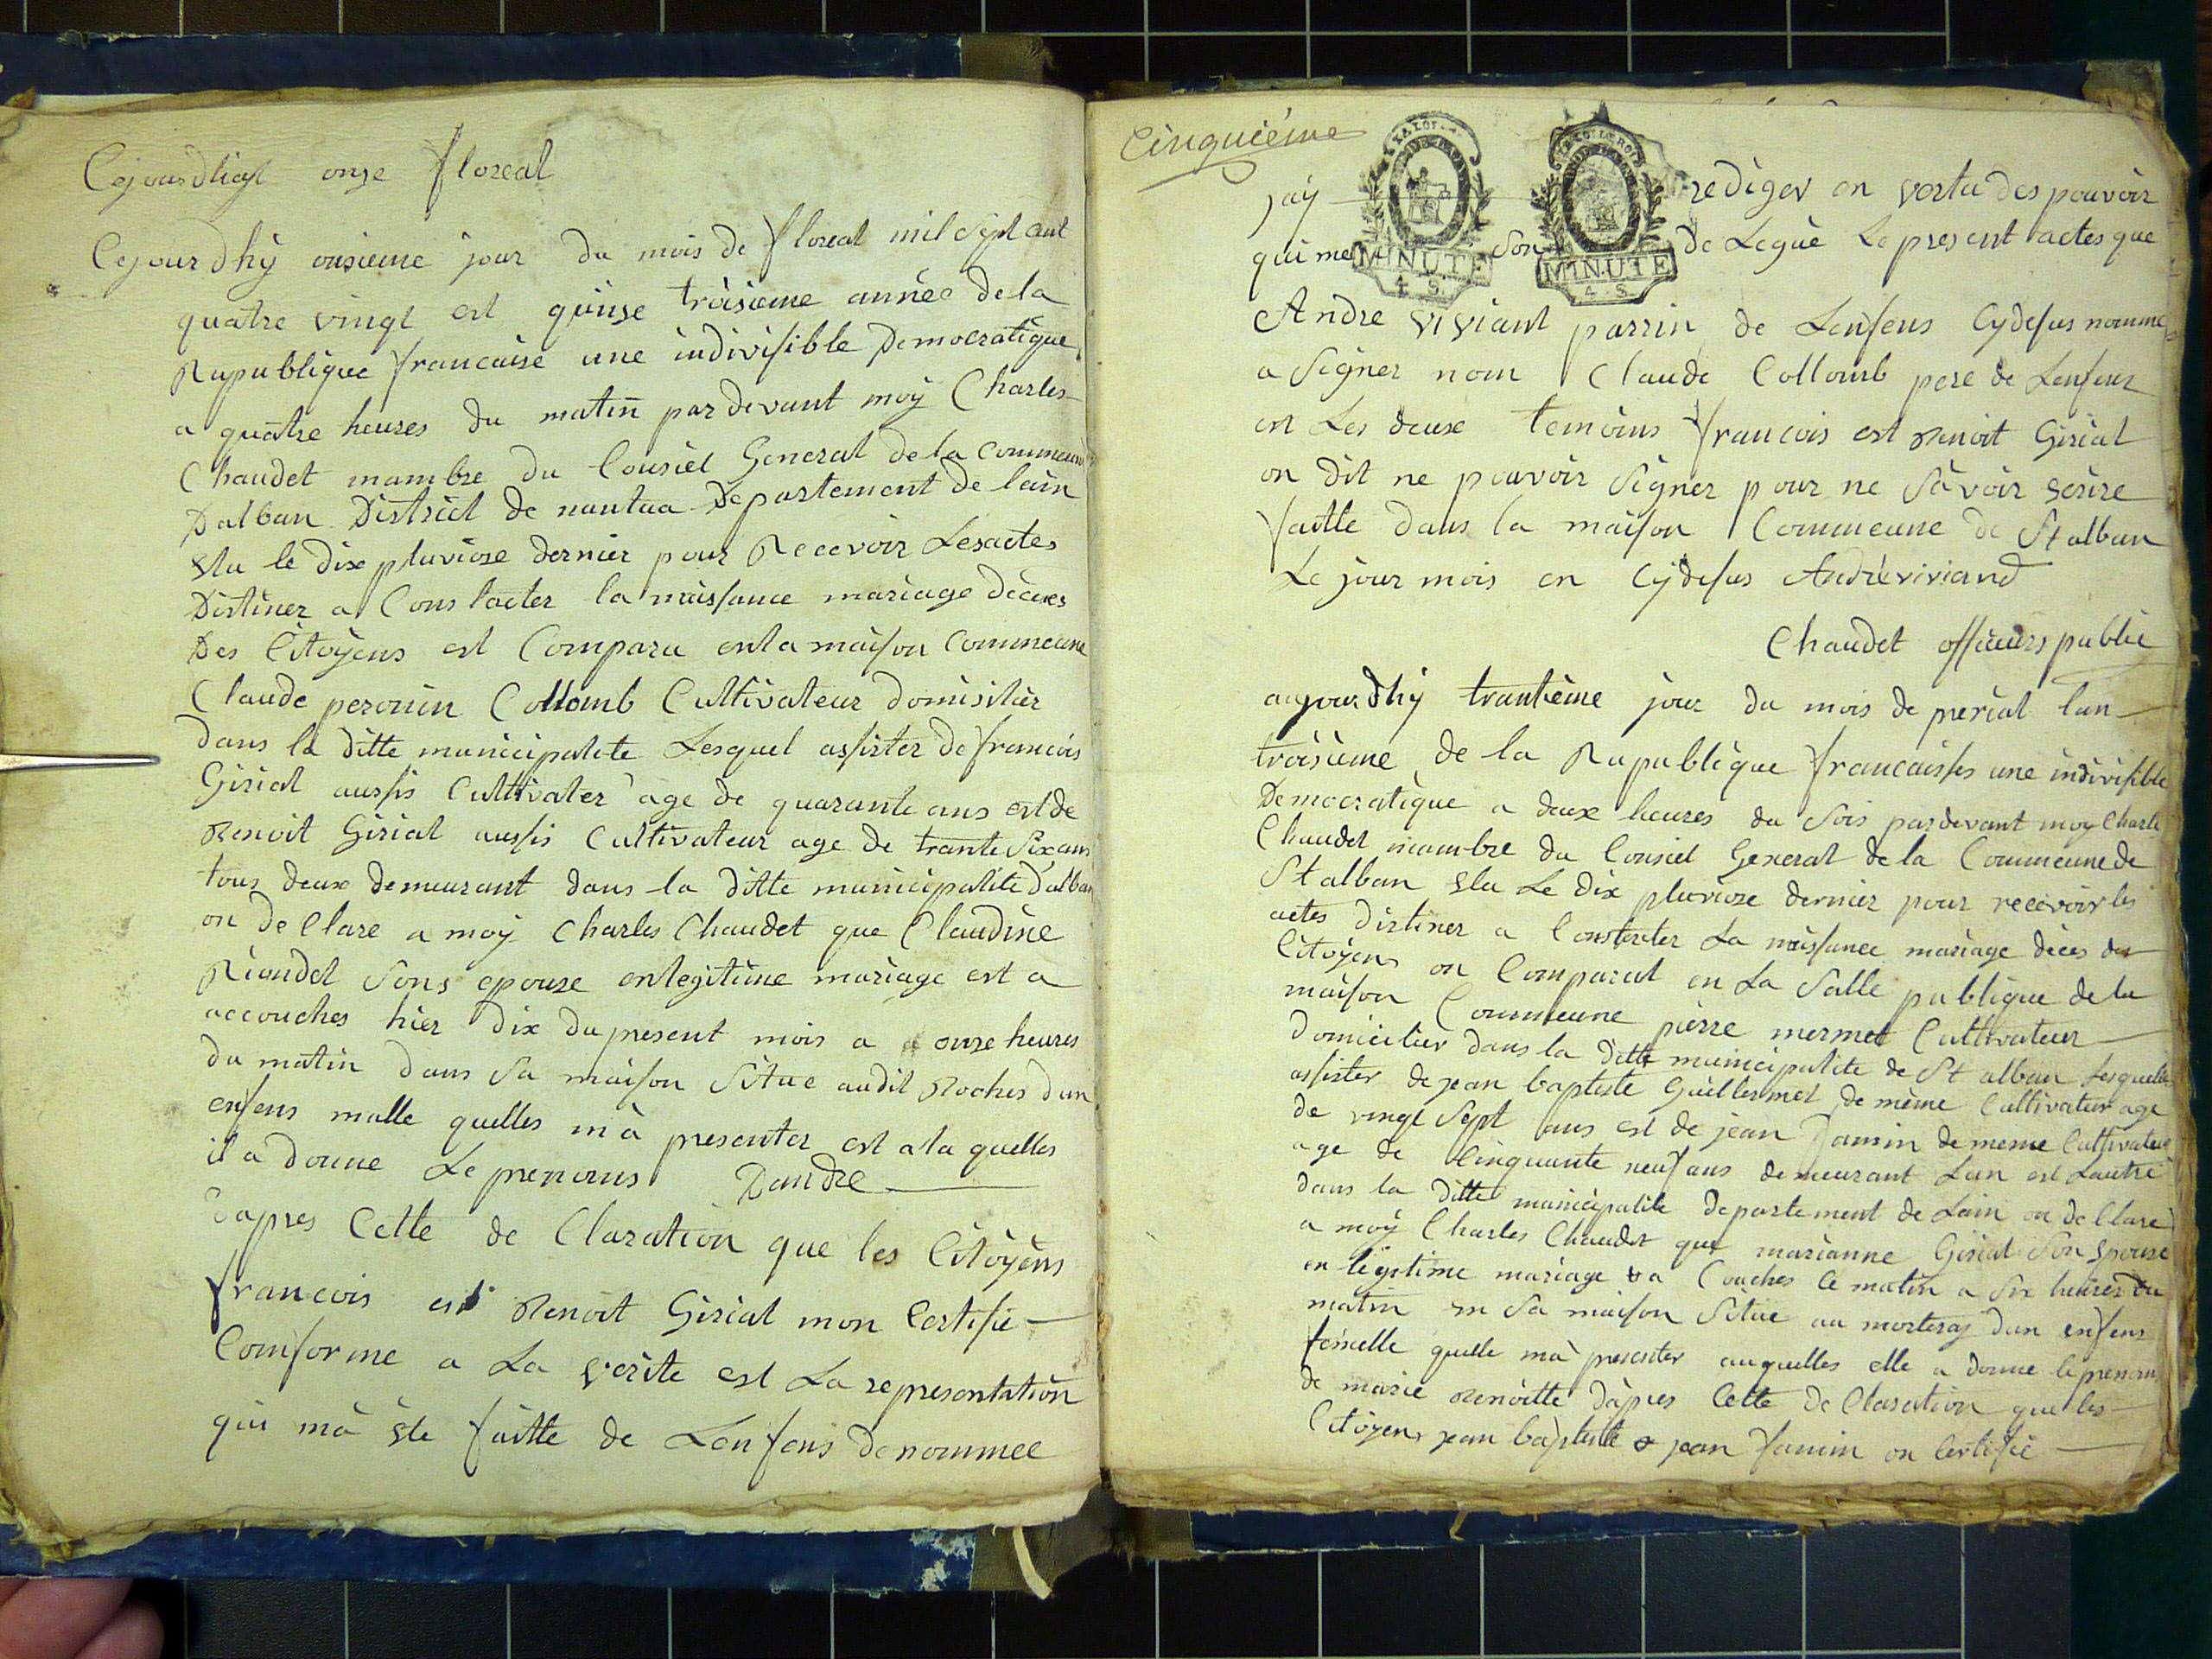 Cejourdhuy onze floreal
Cejour Dhÿ onsieme jour du mois de floreal mil sept cent
quatre vingt est quinse troisieme année de la
Rupublique francaise une indivisible Democratique
a quatre heures du matin par devant moÿ Charles
Chaudet mambre du Consiel General de la commeune
Dalban District de nantua Departement de lain
Elu le dix pluviose dernier pour Recevoir Les actes
Distiner a Constacter la naissance mariage décèes
Des Citoÿens est Comparu enla maison Commeune
Claude perouin Collomb Cultivateur domisilier
dans la ditte municipalite Lesquel assister de francois
Girial aussis Cultivater age de quarante ans est de
Renoit Girial aussis Cultivateur age de trante six ans
tous deux demeurant dans la ditte municipalite Dalban
on de Clare a moÿ Charles Chaudet que Claudine
Riondet Sons epouse enlegitime mariage est a
accouches hier dix du present mois a onze heures
du matin dans Sa maison Situe audit Roches dun
enfens malle quelles mà presenter est ala quelles
il a donne Le prenoms Dandre
dapres Cette de Claration que les Citoÿens
francois est Renoit Girial mon Certifie
Comforme a La verite est La representation
qui mà ete faitte de Lenfens denommee
Cinquiéme
LA LOI
LE ROI
MINUTE
4. S.
MINUTE
4. S.
jaÿ rediger en vertu des pouvoir
qui me son de Legué Le present actes que
Andre viviant parrin de Lenfens Cydesus nomme
a Signer nom Claude Collomb pere de Lenfens
en Les deux temoins francois est Renoit Girial
on dit ne pouvoir Signer pour ne Savoir ecrire
faitte dans la maison Commeune de St alban
Le jour mois en Cydesus André viviand
Chaudet officiers public
aujour dhÿ trantième jour du mois de prerial lan
troisieme de la Rupublique francaisses une indivisible
Democratique a deux heures du Soir pardevant moy Charle
Chaudet mambre du Consiel General de la Commeune de
St alban Elu Le dix pluviose dernier pour recevoir les
actes distiner a Constater La naissance mariage décès des
Citoyens on Comparut en La Salle publique de la
maison Commeune pierre mermet Cultivateur
domicilier dans la ditte municipalite de St alban Lesquelle
assister de jean baptiste Guillermet de même Cultivateur age
de vingt Sept ans est de jean Jamin de meme Cultivateur
age de Cinquante neuf ans demeurant Lun est Lautre
dans la ditte municipalite departement de Lain on de Clare
a moÿ Charles Chaudet que marianne Girial Son epouse
en légitime mariage a Couches Ce matin a Six heures du
matin en Sa maison Situe au morteraÿ dun enfens
femelle quelle mà presenter auquelles elle a donne le prenom
de marie Renoitte dàpres Cette de Claration que les
Citoyens jean baptiste & jean Jamin on Certifié